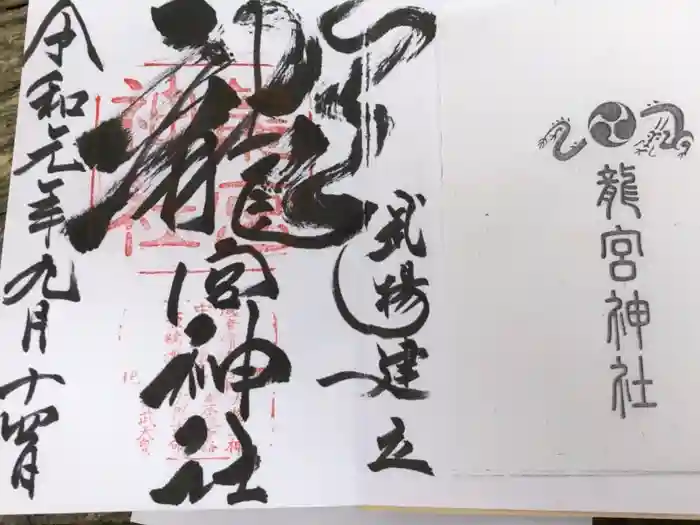 龍宮神社
武揚建立
龍宮神社
令和元年九月十四日
龍宮神社